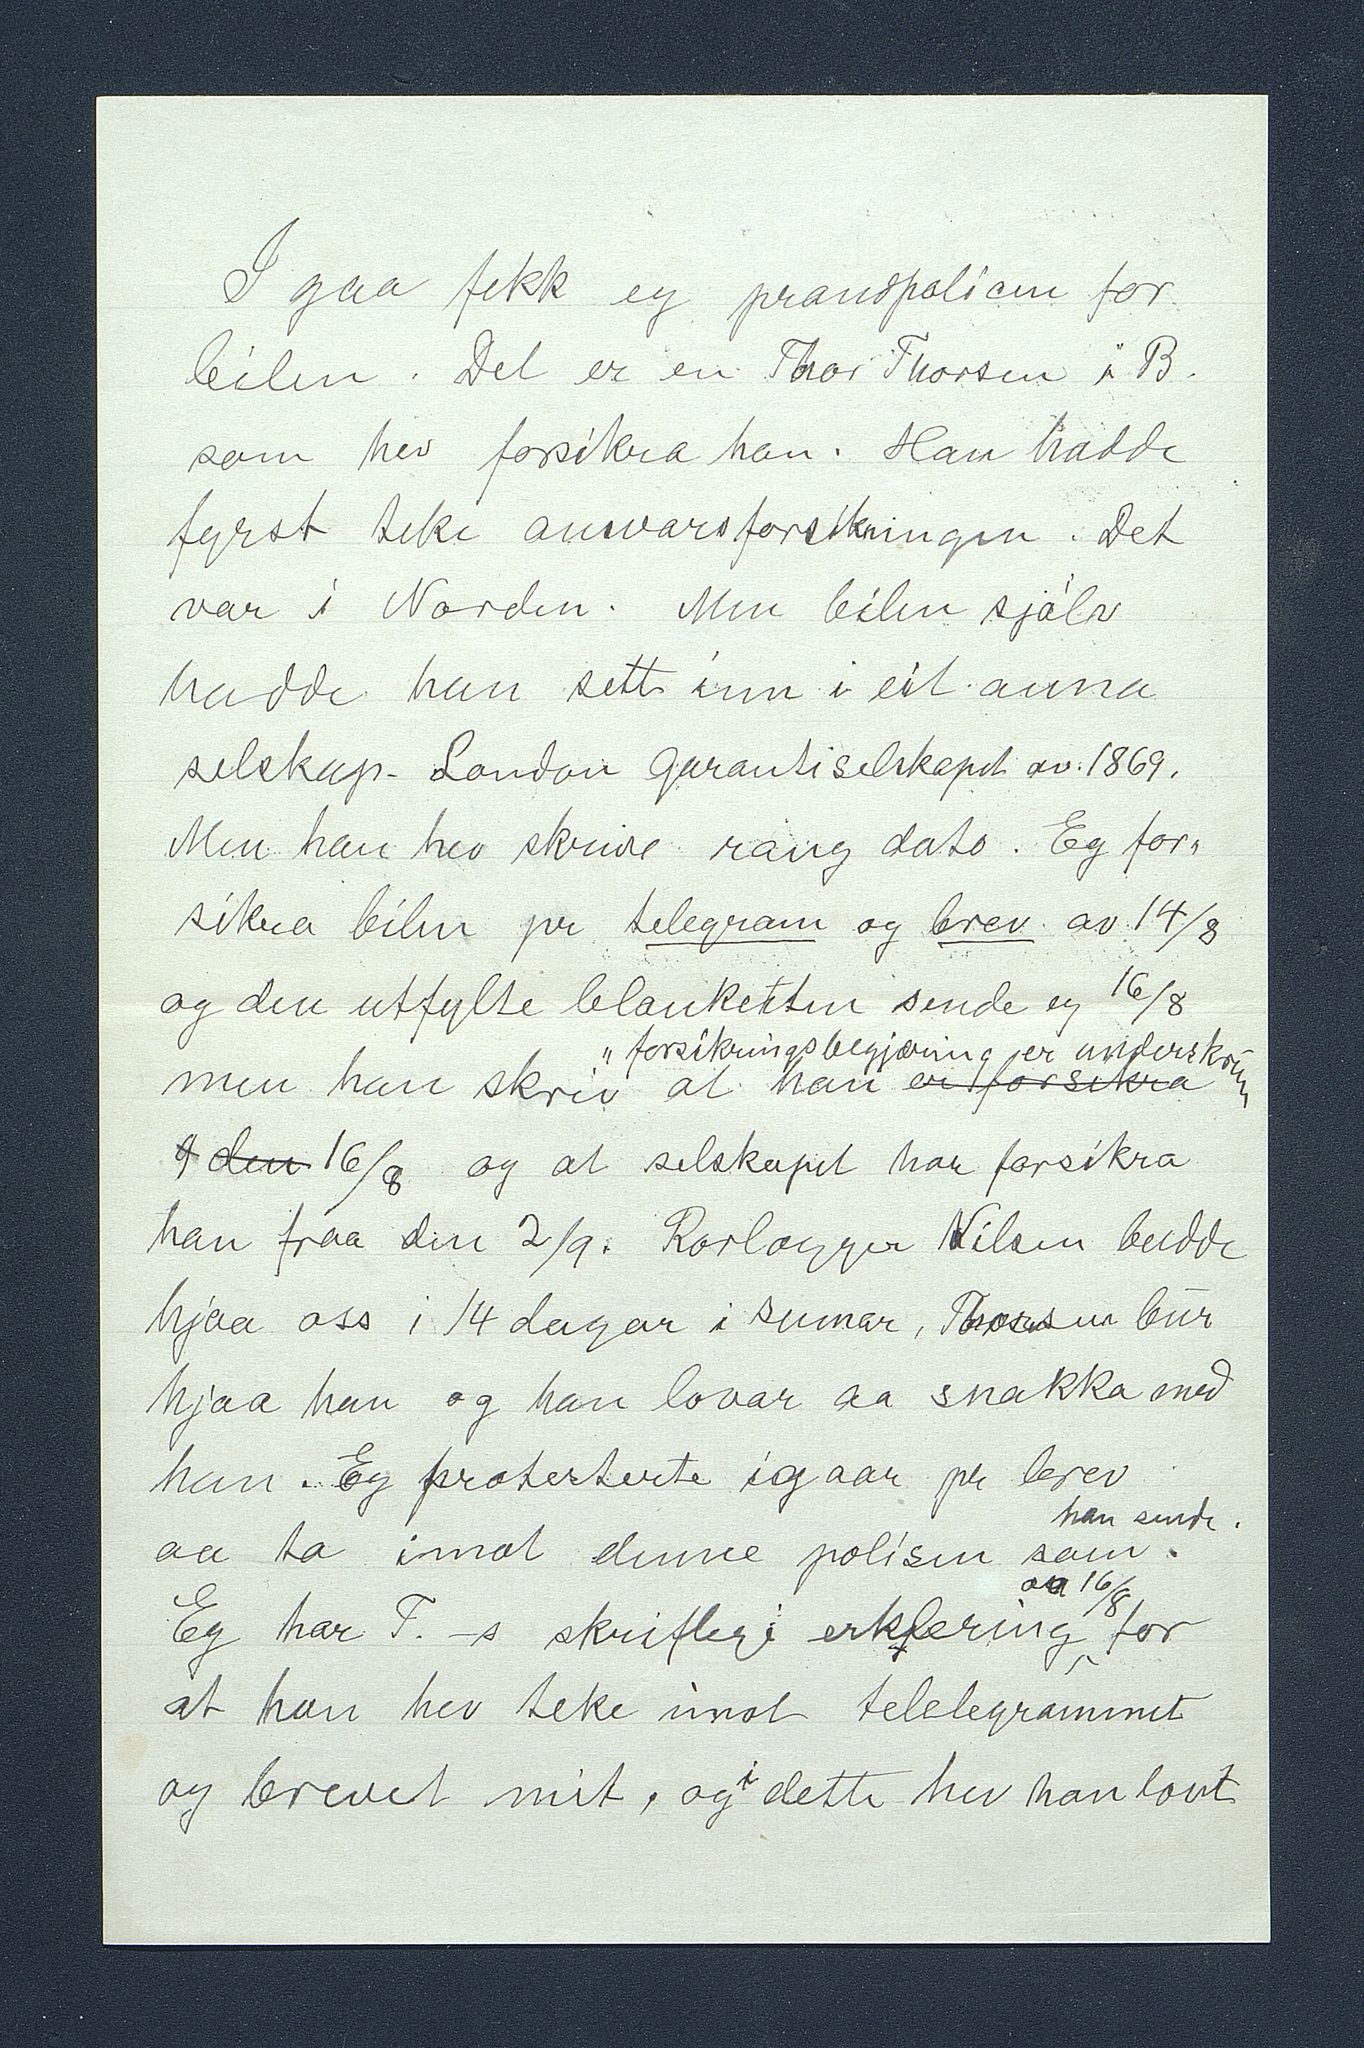 I gaa fekk eg prandpolicen for
bilen. Det er en Thor Thorsen i B.
som hev forsikra han. Han hadde
fyrst teke answarsforsikringen. Det
var i Norden. Men bilen sjólv
hadde han sett inn i eit anna
selskap- London Garantiselskapet av 1869.
Men han hev skrive rang dato. Eg for„
sikra bilen pr telegram og brev av 14/8
og den utfylte blanketten sende eg 16/8
„forsikringsbegjæring er underskriven
men han skriv at han er forsikra
den 16/8 og at selskapet har forsikra
han fraa den 2/9. Rorlægger Nilsen budde
hjaa oss i 14 dagar i sumar, Thorsen bur
hjaa han og han lovar aa snakka med
han. Eg protesterte igaar pr brev
han sende.
aa ta imot denne polisen som.
av 16/8
Eg har T. -s skriflege erklering for
at han hev teke imot telelegrammet
og brevet mit, og i dette hev han lovt